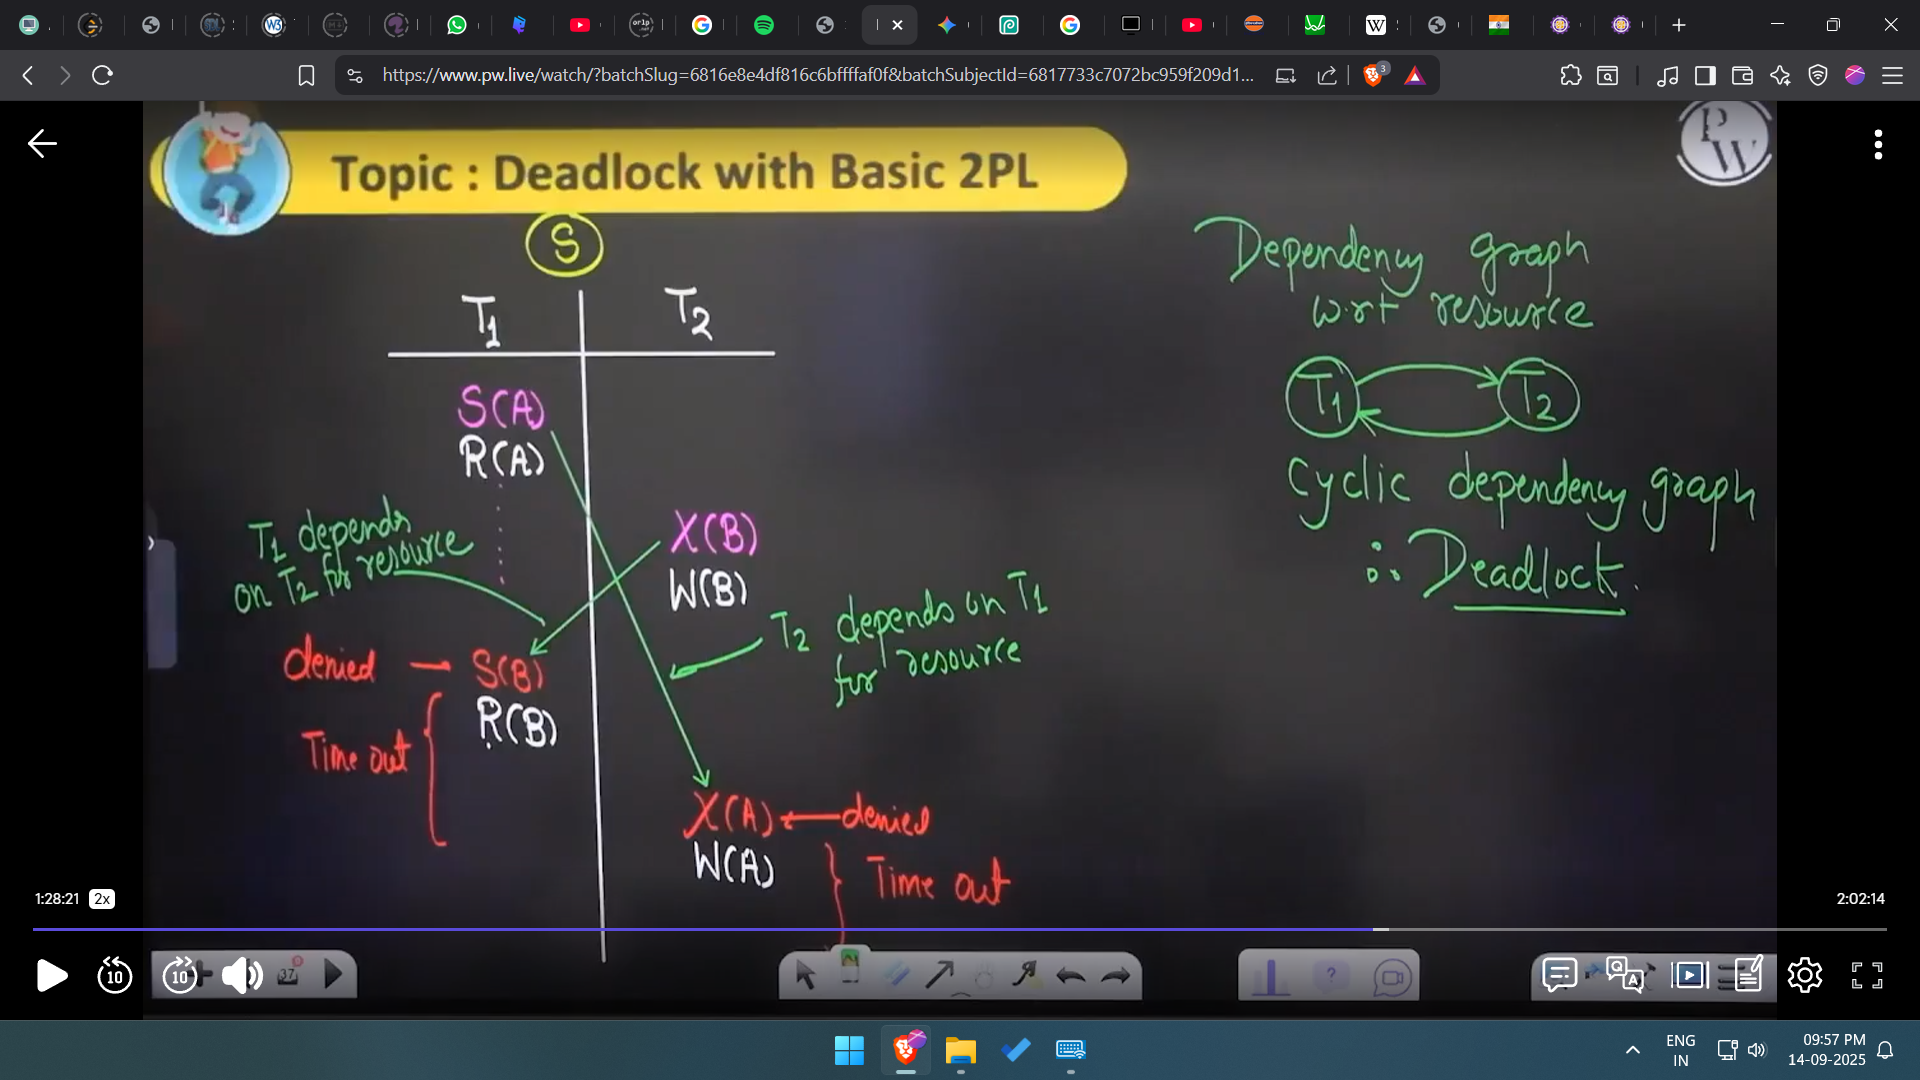 https://www.pw.live/watch/?batchSlug=6816e8e4df816c6bffffaf0f&batchSubjectId=6817733c7072bc959f209d1...
3
Topic : Deadlock with Basic 2PL
PW
S
T1 T2
S(A)
R(A)
X(B)
W(B)
T1 depends
on T2 for resource
T2 depends on T1
for resource
denied → S(B)
R(B)
Time out
X(A) ← denied
W(A)
Time out
Dependency graph
w.r.t resource
T1 T2
Cyclic dependency graph
∴ Deadlock.
1:28:21 2x
2:02:14
10 10
37
ENG
IN
09:57 PM
14-09-2025